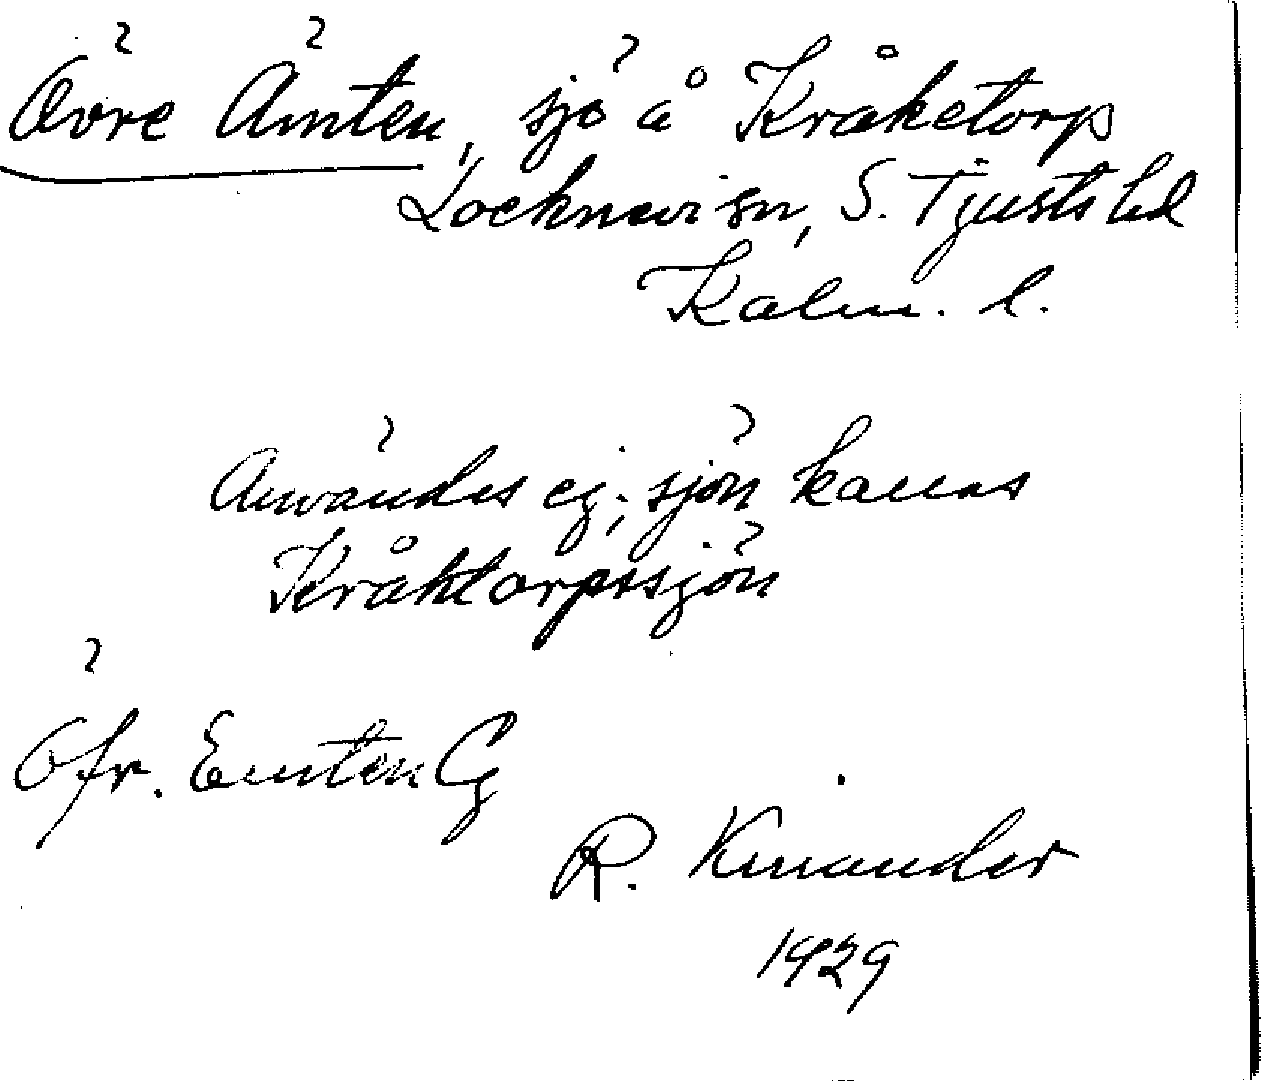 Övre Ämten, sjö å Kråketorp
Locknevi sn, S. Tjusts hd
Kalm. l.
Användes ej; sjön kallas
Kråktorpssjön
Öfr. Emten
R. Kinander
1929